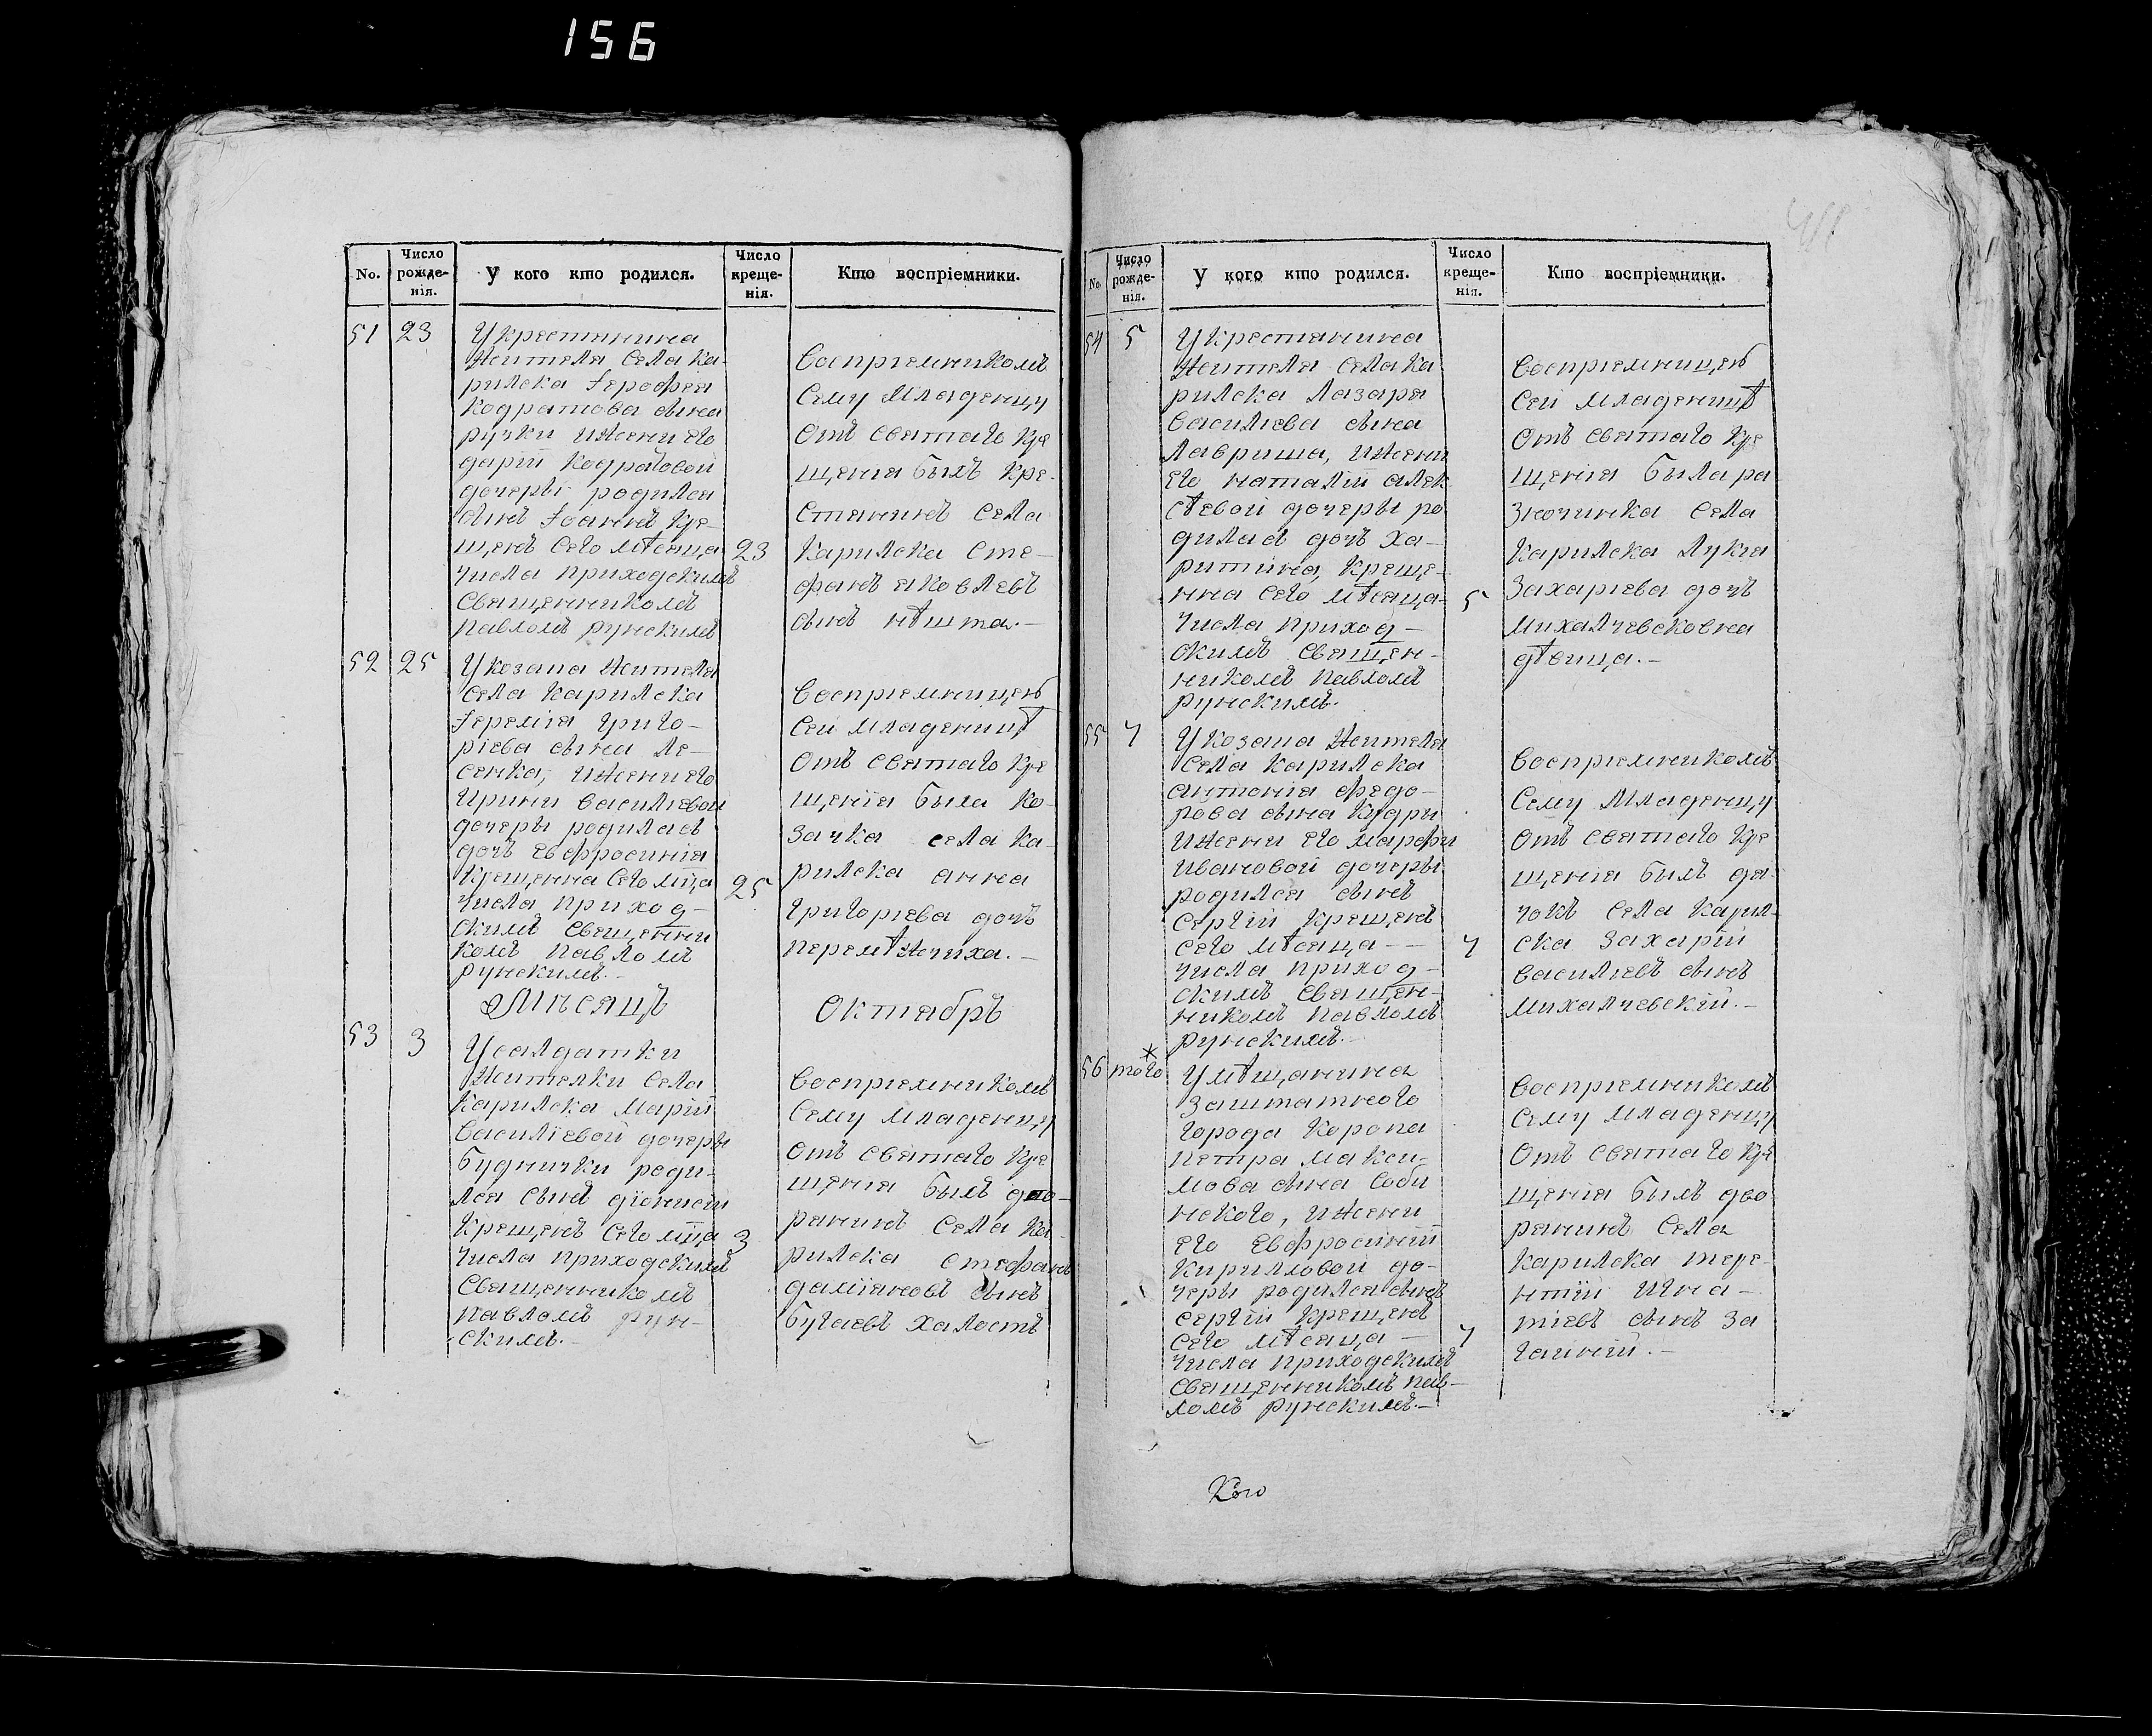 156
No.
Число рожде-нія.
У кого кто родился.
Число креще-нія.
Кто воспріемники.
51 23
У крестянина
жителя села Ка-
рилска Іерофея
Кодратова сына
ручки и жени его
дарій Кодратовой
дочеры родился
сынъ Іоаннъ кре-
щенъ сего мѣсяца 23
числа приходскимъ
Священникомъ
Павломъ рунскимъ
Воспріемникомъ
сему младенцу
отъ святаго кре
щенія былъ кре-
стянинъ села
Карилска Сте-
фанъ яковлевъ
сынъ нѣшта.-
52 25
У козака жителя
села Карилска
Іереміи григо-
ріева сына Ле-
сенка, и жени его
Ирини василіевой
дочеры родилась
дочъ Евфросинія
крещенна сего мца 25
числа приход-
скимъ священни
комъ павломъ
рунскимъ.-
Воспріемницею
сей младеницѣ
отъ святаго кре
щенія была ко-
зачка села ка-
рилска анна
григоріева дочъ
перемѣжчиха.-
Мѣсяцъ Октябръ
53 3
У салдатки
жителки села
Карилска Марій
василіевой дочеры
буднички роди-
лся сынъ діонисій
крещенъ сего мца 3
числа приходскимъ
Священникомъ
павломъ рун-
скимъ.-
Воспріемникомъ
сему младенцу
отъ святаго кре
щенія былъ дво-
ранинъ села ка-
рилска стефанъ
даміановъ сынъ
бугаевъ халостъ
No.
Число рожде-нія.
У кого кто родился.
Число креще-нія.
Кто воспріемники.
54 5
У крестянина
жителя села Ка
рилска Лазаря
василіева сына
Лавриша, и жени
его наталій алек
сѣевой дочеры ро
дилась дочъ ха-
ритина, креще-
нна сего мѣсяца 5
числа приход-
скимъ священ-
никомъ павломъ
рунскимъ.
Воспріемницею
сей младеницѣ
отъ святаго кре
щенія была ра
зночинка села
Карилска Лукія
Захаріева дочъ
михалчевсковна
дѣвица.-
55 7
У козака жителя
села карилска
антонія федо-
рова сына кудри
и жени его марфи
ивановой дочеры
родился сынъ
сергій крещенъ
сего мѣсяца - 7
числа приход-
скимъ священ-
никомъ павломъ
рунскимъ.
Воспріемникомъ
сему младенцу
отъ святаго кре
щенія былъ дя-
чокъ села карил-
ска Захарій
василіевъ сынъ
михалчевскій.-
56 того *
У мѣщанина
заштатного
города Коропа
петра макси-
мова сына соби
нского, и жени
его Евфросиній
Кирилловой до-
черы родился сынъ
сергій крещенъ
сего мѣсяца - 7
числа приходскимъ
священникомъ пав-
ломъ рунскимъ.-
Воспріемникомъ
сему младенцу
отъ святаго кре
щенія былъ дво
ранинъ села
карилска тере-
нтій игна-
тіевъ сынъ за
гайній.-